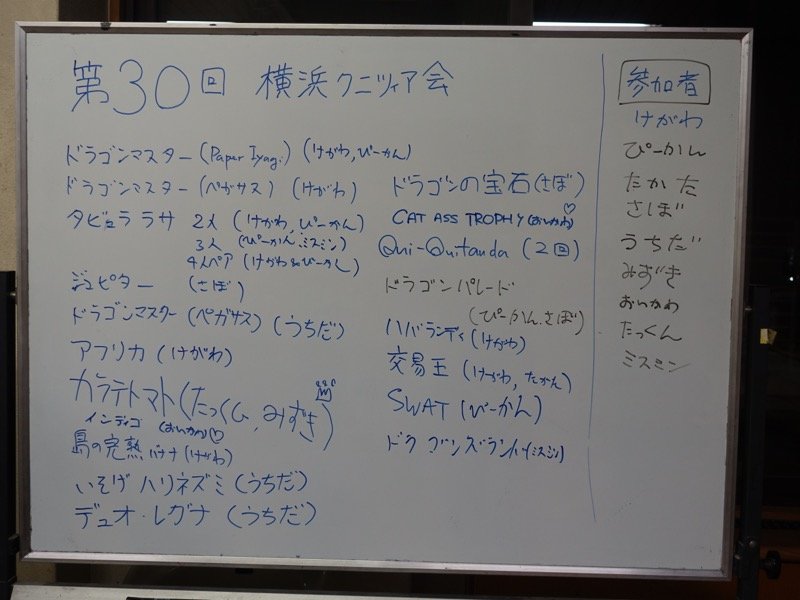 第30回 横浜クニツィア会
ドラゴンマスター (Paper Iyagi) (けがわ, ぴーかん)
ドラゴンマスター (ペガサス) (けがわ)
タビュラ ラサ 2人 (けがわ, ぴーかん)
3人 (ぴーかん, ミスミン)
4人ペア (けがわ&ぴーかん)
ジュピター (さぼ)
ドラゴンマスター (ペガサス) (うちだ)
アフリカ (けがわ)
カラテトマト (たっくん, みずき)
インディゴ (おいかわ)♡
島の完熟バナナ (けがわ)
いそげ ハリネズミ (うちだ)
デュオ・レグナ (うちだ)
ドラゴンの宝石 (さぼ)
CAT ASS TROPHY (おいかわ)♡
Qui-Quitanda (2回)
ドラゴンパレード
(ぴーかん, さぼ)
ハバランディ (けがわ)
交易王 (けがわ, たかた)
SWAT (ぴーかん)
(ミスミン)
参加者
けがわ
ぴーかん
たかた
さぼ
うちだ
みずき
おいかわ
たっくん
ミスミン